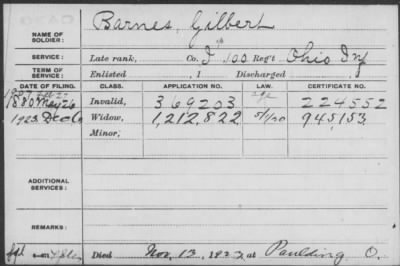 NAME OF SOLDIER: Barnes, Gilbert
SERVICE: Late rank, Co. I 100 Reg't Ohio Inf
TERM OF SERVICE: Enlisted , 1 Discharged , 1
DATE OF FILING. CLASS. APPLICATION NO. LAW. CERTIFICATE NO.
1880 May 26 Invalid, 369203 age 224552
1923 Dec 6 Widow, 1,212,822 5/1/20 945153
Minor,
ADDITIONAL SERVICES:
REMARKS:
Died Nov. 13, 1923 at Paulding O.